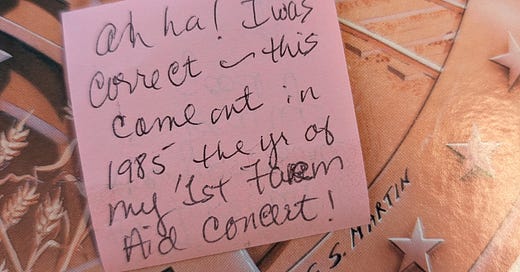 Ah ha! I was
correct – this
came out in
1985, the yr of
my 1st Farm
Aid Concert!
S. MARTIN